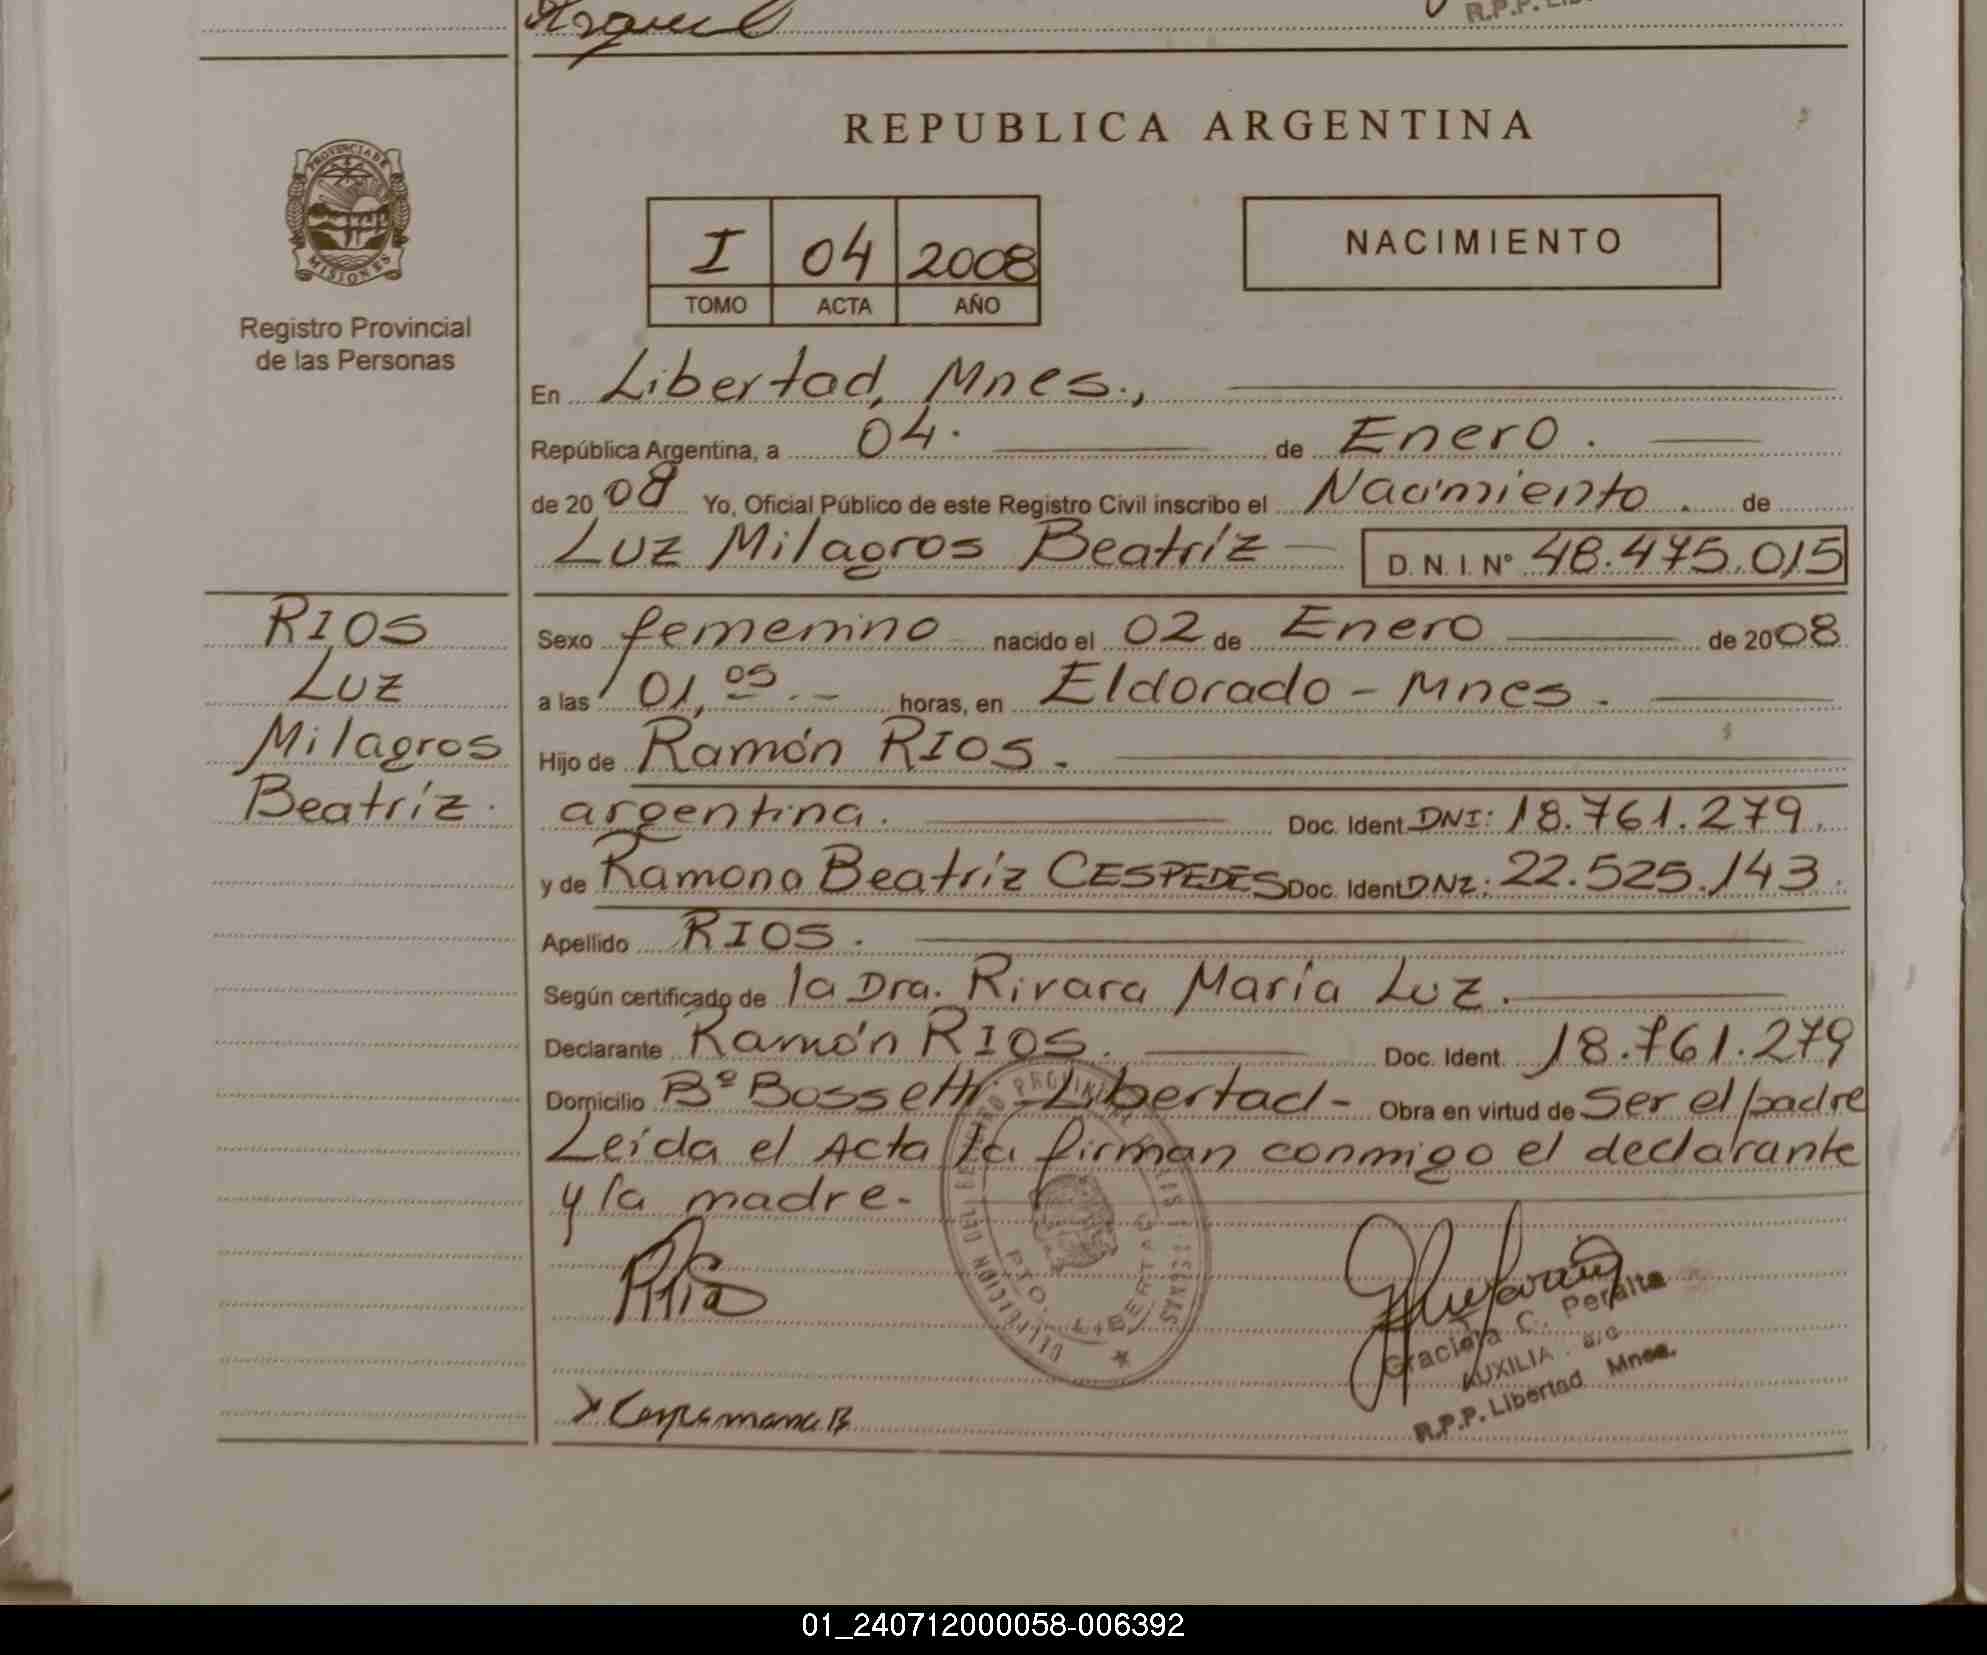 R.P.P.
REPUBLICA ARGENTINA
PROVINCIA DE
MISIONES
Registro Provincial
de las Personas
I 04 2008
TOMO ACTA AÑO
NACIMIENTO
En Libertad, Mnes.,
República Argentina, a 04. de Enero.
de 2008 Yo, Oficial Público de este Registro Civil inscribo el Nacimiento. de
Luz Milagros Beatríz D. N. I. N° 48.475.015
RIOS
Luz
Milagros
Beatríz.
Sexo femenino nacido el 02 de Enero de 2008
a las 01,05 horas, en Eldorado - Mnes.
Hijo de Ramón RIOS.
argentina. Doc. Ident. DNI: 18.761.279.
y de Ramona Beatríz CESPEDES Doc. Ident DNI: 22.525.143.
Apellido RIOS.
Según certificado de la Dra. Rivara María Luz.
Declarante Ramón RIOS. Doc. Ident. 18.761.279
Domicilio Bº Bossetti - Libertad - Obra en virtud de Ser el padre
Leída el Acta la firman conmigo el declarante
y la madre.
DELEGACION DEL REGISTRO PROVINCIAL
PTO. LIBERTAD
MISIONES
Graciela C. Peralta
AUXILIA a/c
R.P.P. Libertad Mnes.
01_240712000058-006392